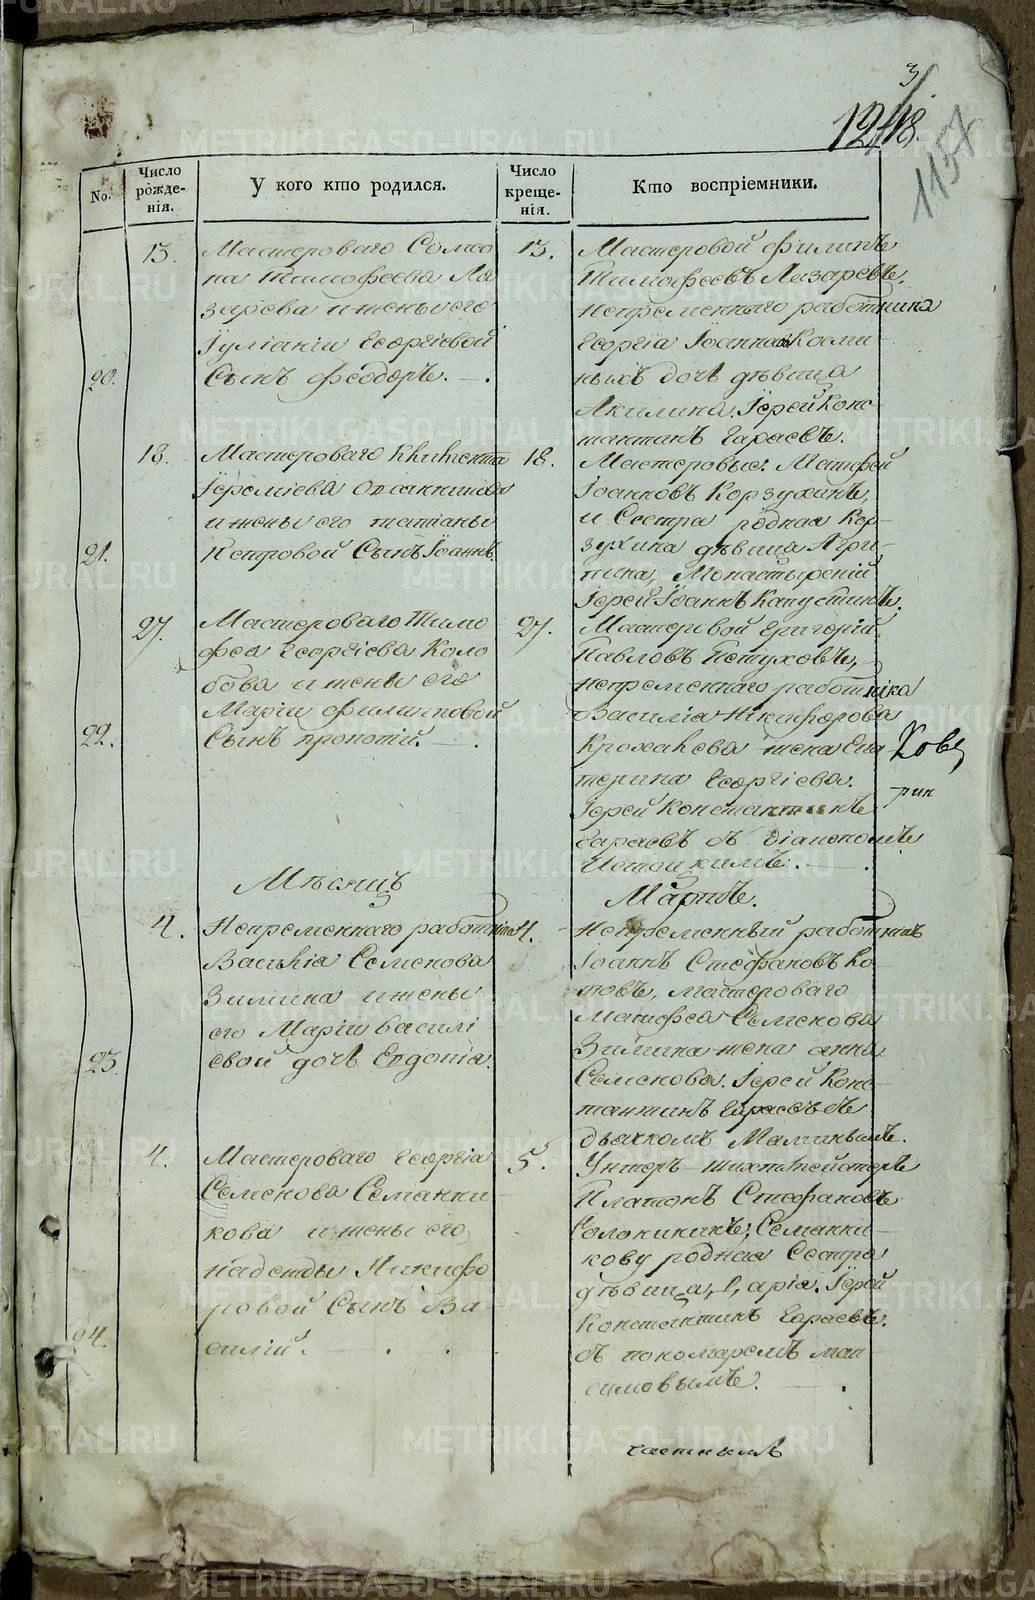 3
1248.
1157
No.
Число рожде-нія.
У кого кто родился.
Число креще-нія.
Кто воспріемники.
13.
Мастероваго Самсо
на Тимофеева Ла
зарева и жены его
Іуліаніи Георгіевой
20.
Сынъ Феодоръ. —.
13.
Мастеровой Филипъ
Тимофеевъ Лазаревъ,
Непременнаго работника
Георгія Іоаннова
ныхъ дочь девица
Акилина. Іерей Конс
тантинъ Гараевъ.
18.
Мастероваго
Іереміева
и жены его татіаны
21.
Петровой Сынъ Іоаннъ
18.
Мастеровые: Матфей
Іоанновъ Корзухинъ,
и Сестра родная Кор-
зухина девица Агри-
пина, Монастырскій
Іерей Іоаннъ Капустинъ.
27.
Мастероваго Тимо
фея Георгіева Коло
бова и жены его
Маріи Филипповой
22.
Сынъ прокопій. —.
27.
Мастеровой Григорій
Павловъ Петуховъ,
Непременнаго работника
Василія Никифорова
жена Ека
терина Георгіева.
Іерей Константинъ
Гараевъ съ діакономъ
Мѣсяцъ
Мартъ.
4.
Непременнаго работника
Василіа Семенова
Зимина и жены
его Маріи Василі
23.
евой дочь Евдокія.
4.
Непременный работникъ
Іоаннъ Стефановъ Ко
товъ, мастероваго
Матфеа Семенова
Зимина жена анна
Семенова. Іерей Конс-
тантинъ Гараевъ съ
дьячкомъ
4.
Мастероваго Георгіа
Семенова Семанни
кова и жены его
Надежды Никифо
ровой Сынъ Ва-
24.
силій. — . .
5.
Унтеръ-шихтмейстеръ
Платонъ Стефановъ
Семанни-
кову родная Сестра
девица, Дарія. Іерей
Константинъ Гараевъ.
съ пономаремъ мак
симовымъ. — .